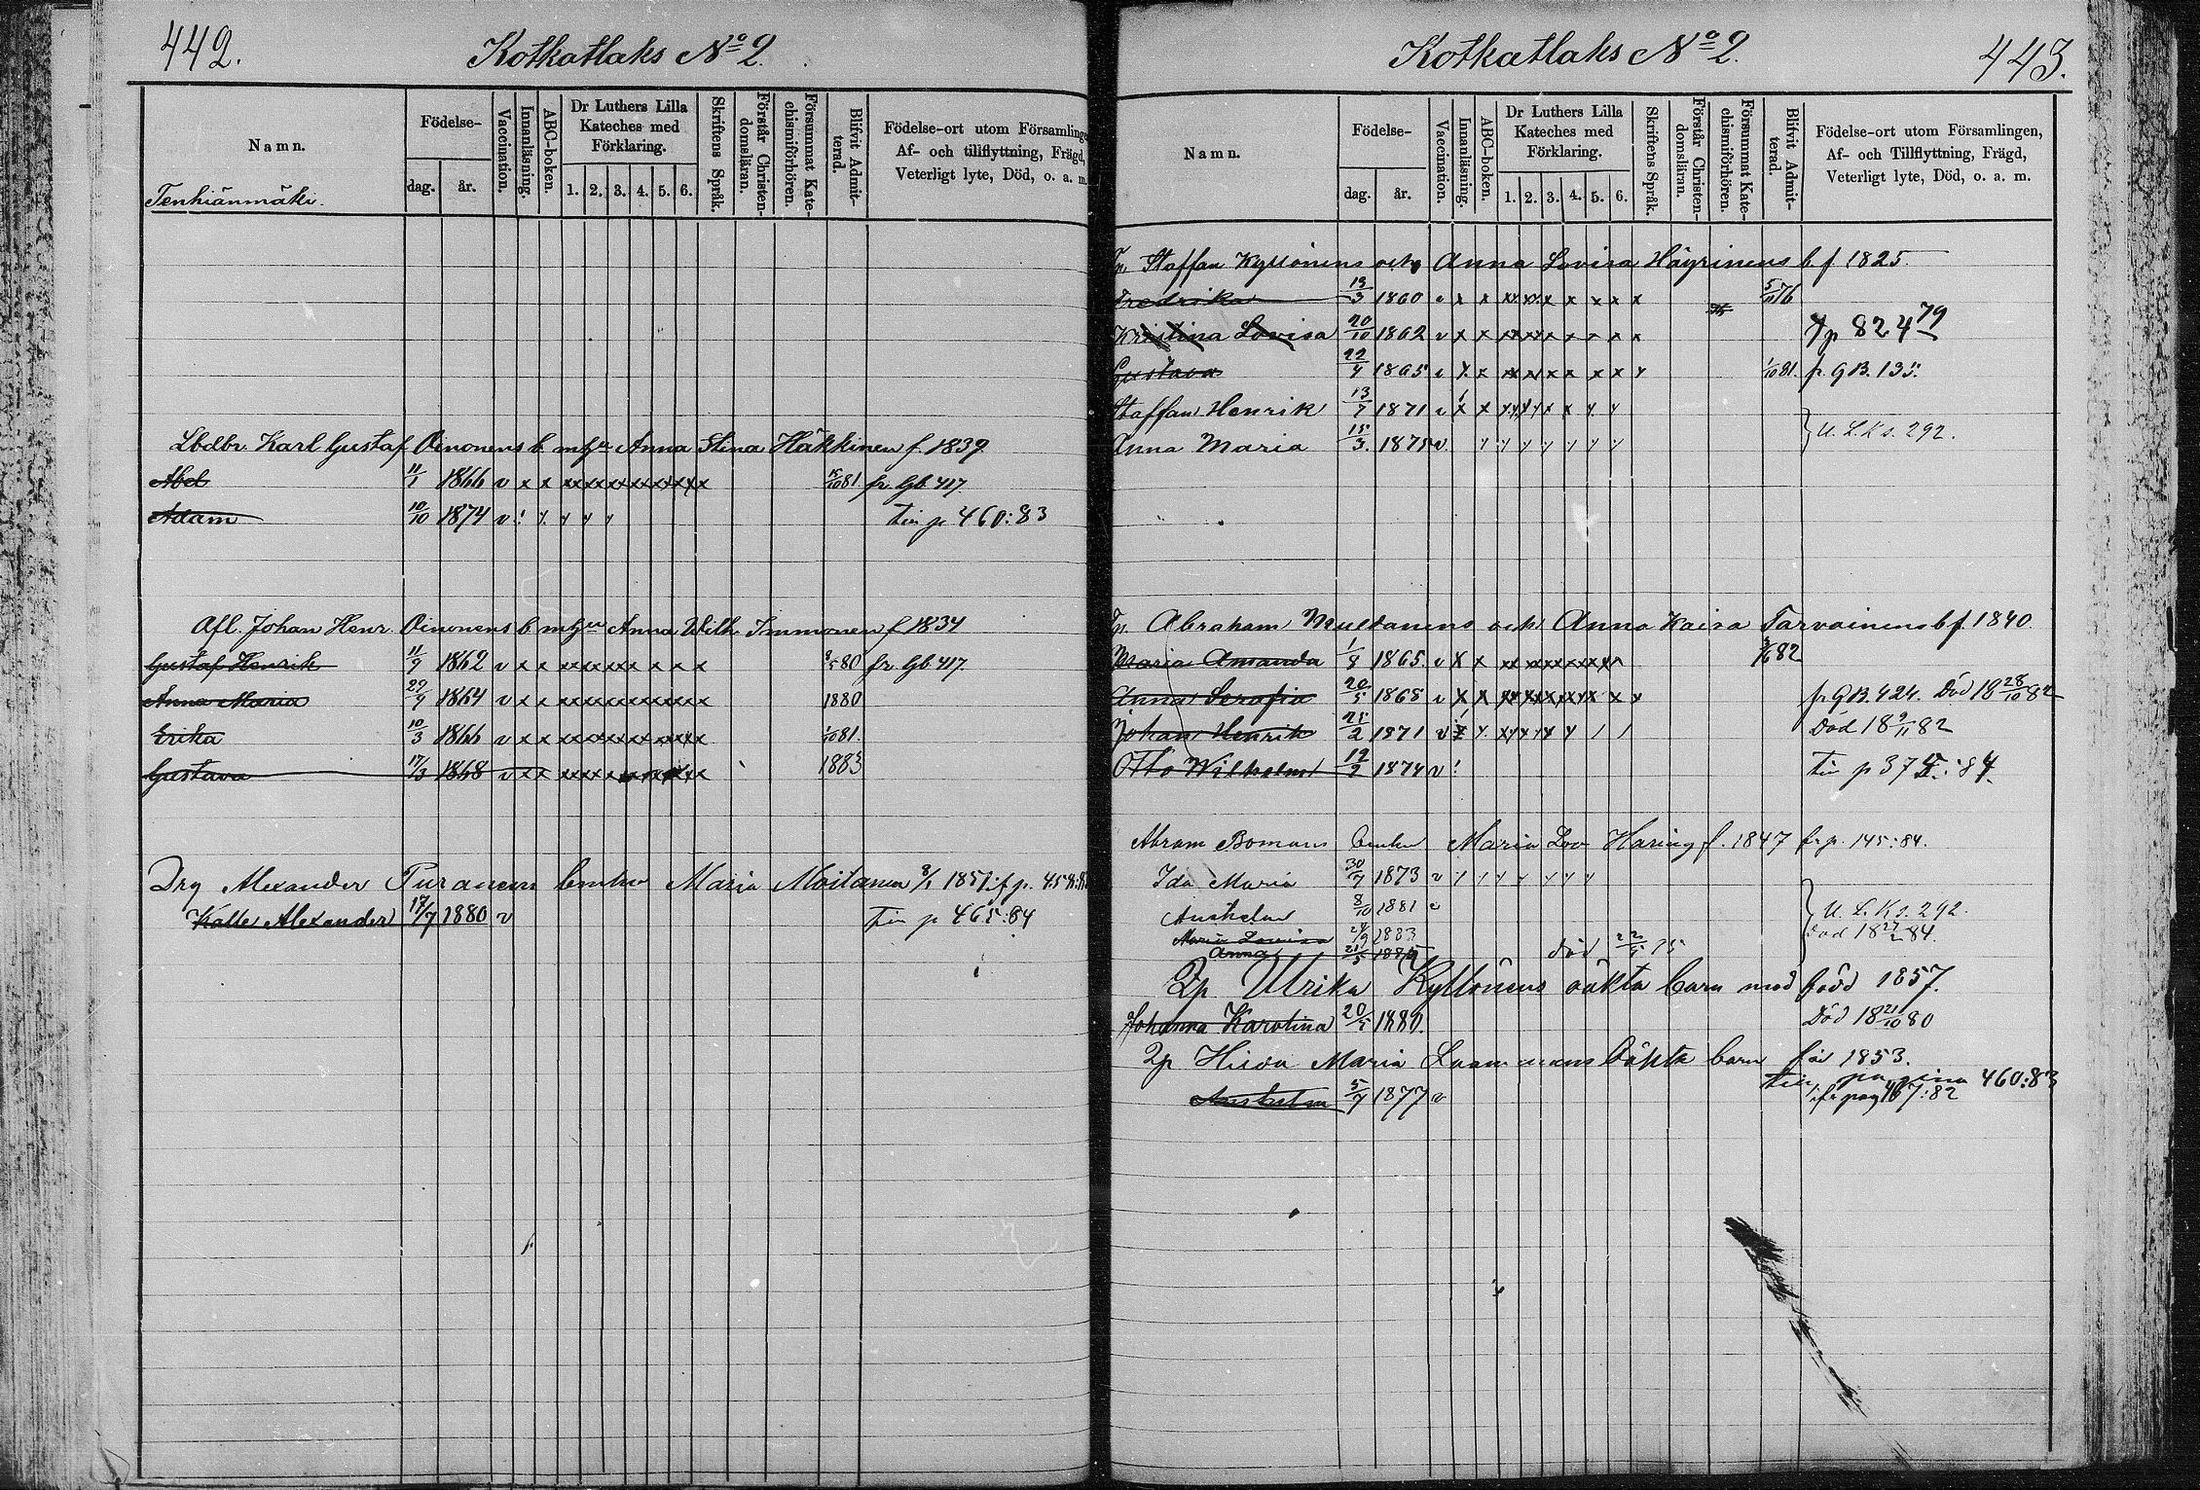 442.
Kotkatlaks No 2.
Namn.
Födelse-
dag.
år.
Vaccination.
Innanläsning.
ABC-boken.
Dr Luthers Lilla Kateches med Förklaring.
1. 2. 3. 4. 5. 6.
Skriftens Språk.
Förstår Christendomsläran.
Försummat Katechismiförhören.
Blifvit Admitterad.
Födelse-ort utom Församling
Af- och tillflyttning, Frägd,
Veterligt lyte, Död, o. a. m.
Tenhiänmäki.
Lbdbr. Karl Gustaf Oinonens b. m hu Anna Stina Häkkinen f. 1839
Abel 11/1 1866 v x x xxxxxxxxxxx 15/10 81 fr. Gb. 417.
Adam 10/10 1874 v ! tin p 460:83
Afl. Johan Henr. Oinonens b m hu Anna Wilh Immonen f 1834
Gustaf Henrik 11/9 1862 v x x xxxx x x x x x 80 fr. Gb 417.
Anna Maria 29/9 1864 v x x xxxxxxxxxx 1880
Erika 10/3 1866 v x x xxxxxxxxxx 1/10 81.
Gustava 17/3 1868 v x x xxxx 1883
Drg Alexander Puranens Maria Moilanen 1851
Kalle Alexander 17/7 1880 v tin p 465:84
443.
Kotkatlaks No 2.
Namn.
Födelse-
dag.
år.
Vaccination.
Innanläsning.
ABC-boken.
Dr Luthers Lilla Kateches med Förklaring.
1. 2. 3. 4. 5. 6.
Skriftens Språk.
Förstår Christendomsläran.
Försummat Katechismiförhören.
Blifvit Admitterad.
Födelse-ort utom Församlingen,
Af- och Tillflyttning, Frägd,
Veterligt lyte, Död, o. a. m.
Staffan Kyllönens och Anna Lovisa Häyrinens b f 1825
Fredrika 13/3 1860 v x x xxxxx x x x x 5/11 76
Kristina Lovisa 20/10 1862 v x x xxxxx x x x x 824 79
Gustava 22/4 1865 v x x xxxxx x x x 1/10 81. p. GB. 135.
Staffan Henrik 13/7 1871 v x x
Anna Maria 15/3 1875 v. U. L. Ks. 292.
Abraham Multanens och Anna Kaisa Tarvainens b f. 1840
Maria Amanda 1/8 1865 v x x xxxxxxxx 82
Anna Serafia 20/5 1868 v x x xxxxxxxx x p GB. 424. Död 18 28/10 82
Johan Henrik 25/2 1871 v Död 18 9/11 82
Otto Wilhelm 12/2 1874 v ! tin p 375:84.
Abram Bomans Maria Lov Haring f. 1847 fr p. 145:84.
Ida Maria 30/7 1873 v
Anshelm 8/10 1881 v U. L. Ks. 292.
Maria Lovisa 24/9 1883 Död 18 27/2 84.
Anna 21/5 1885 död
Ulrika Kyllönens oäkta barn mod född 1857.
Johanna Karolina 20/5 1880. Död 18 21/10 80
Maria oäkta barn 1853.
tin pagina 460:83
Anshelm 5/7 1877 v ifr pag 167:82